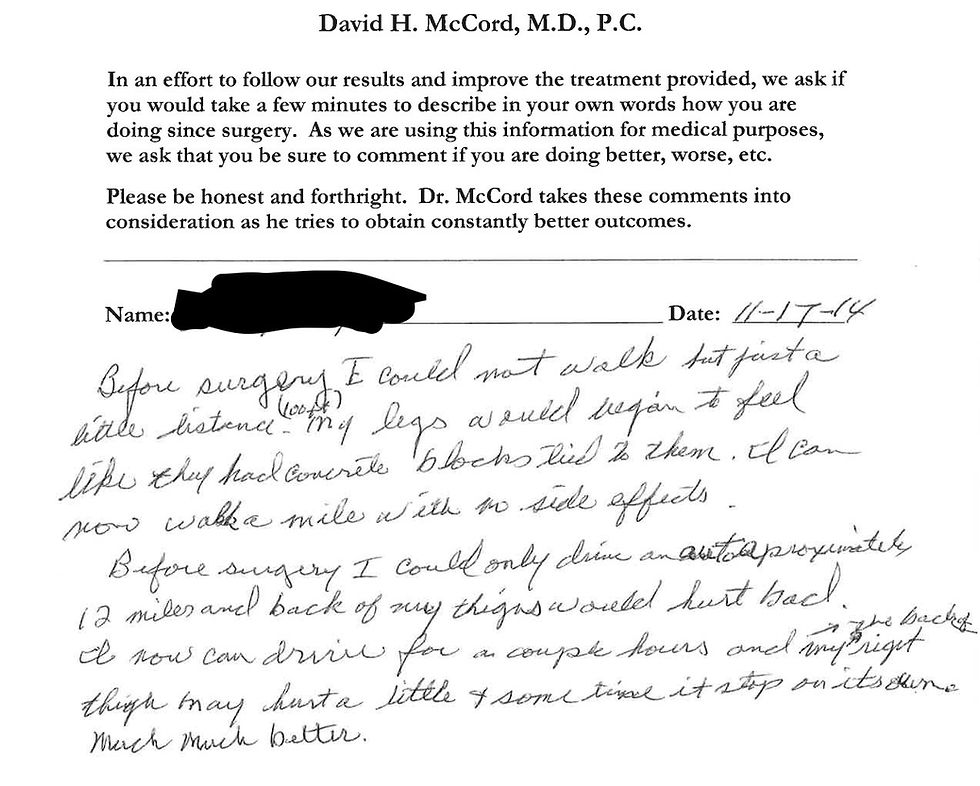 David H. McCord, M.D., P.C.
In an effort to follow our results and improve the treatment provided, we ask if
you would take a few minutes to describe in your own words how you are
doing since surgery.  As we are using this information for medical purposes,
we ask that you be sure to comment if you are doing better, worse, etc.
Please be honest and forthright.  Dr. McCord takes these comments into
consideration as he tries to obtain constantly better outcomes.
Name: Date: 11-17-14
Before surgery I could not walk but just a
little distance. (100 ft) My legs would began to feel
like they had concrete blocks tied to them. I can
now walk a mile with no side effects.
Before surgery I could only drive an auto aproximately
12 miles and back of my thighs would hurt bad.
I now can drive for a couple hours and the back of my right
thigh may hurt a little & some time it stop on its own.
Much Much better.